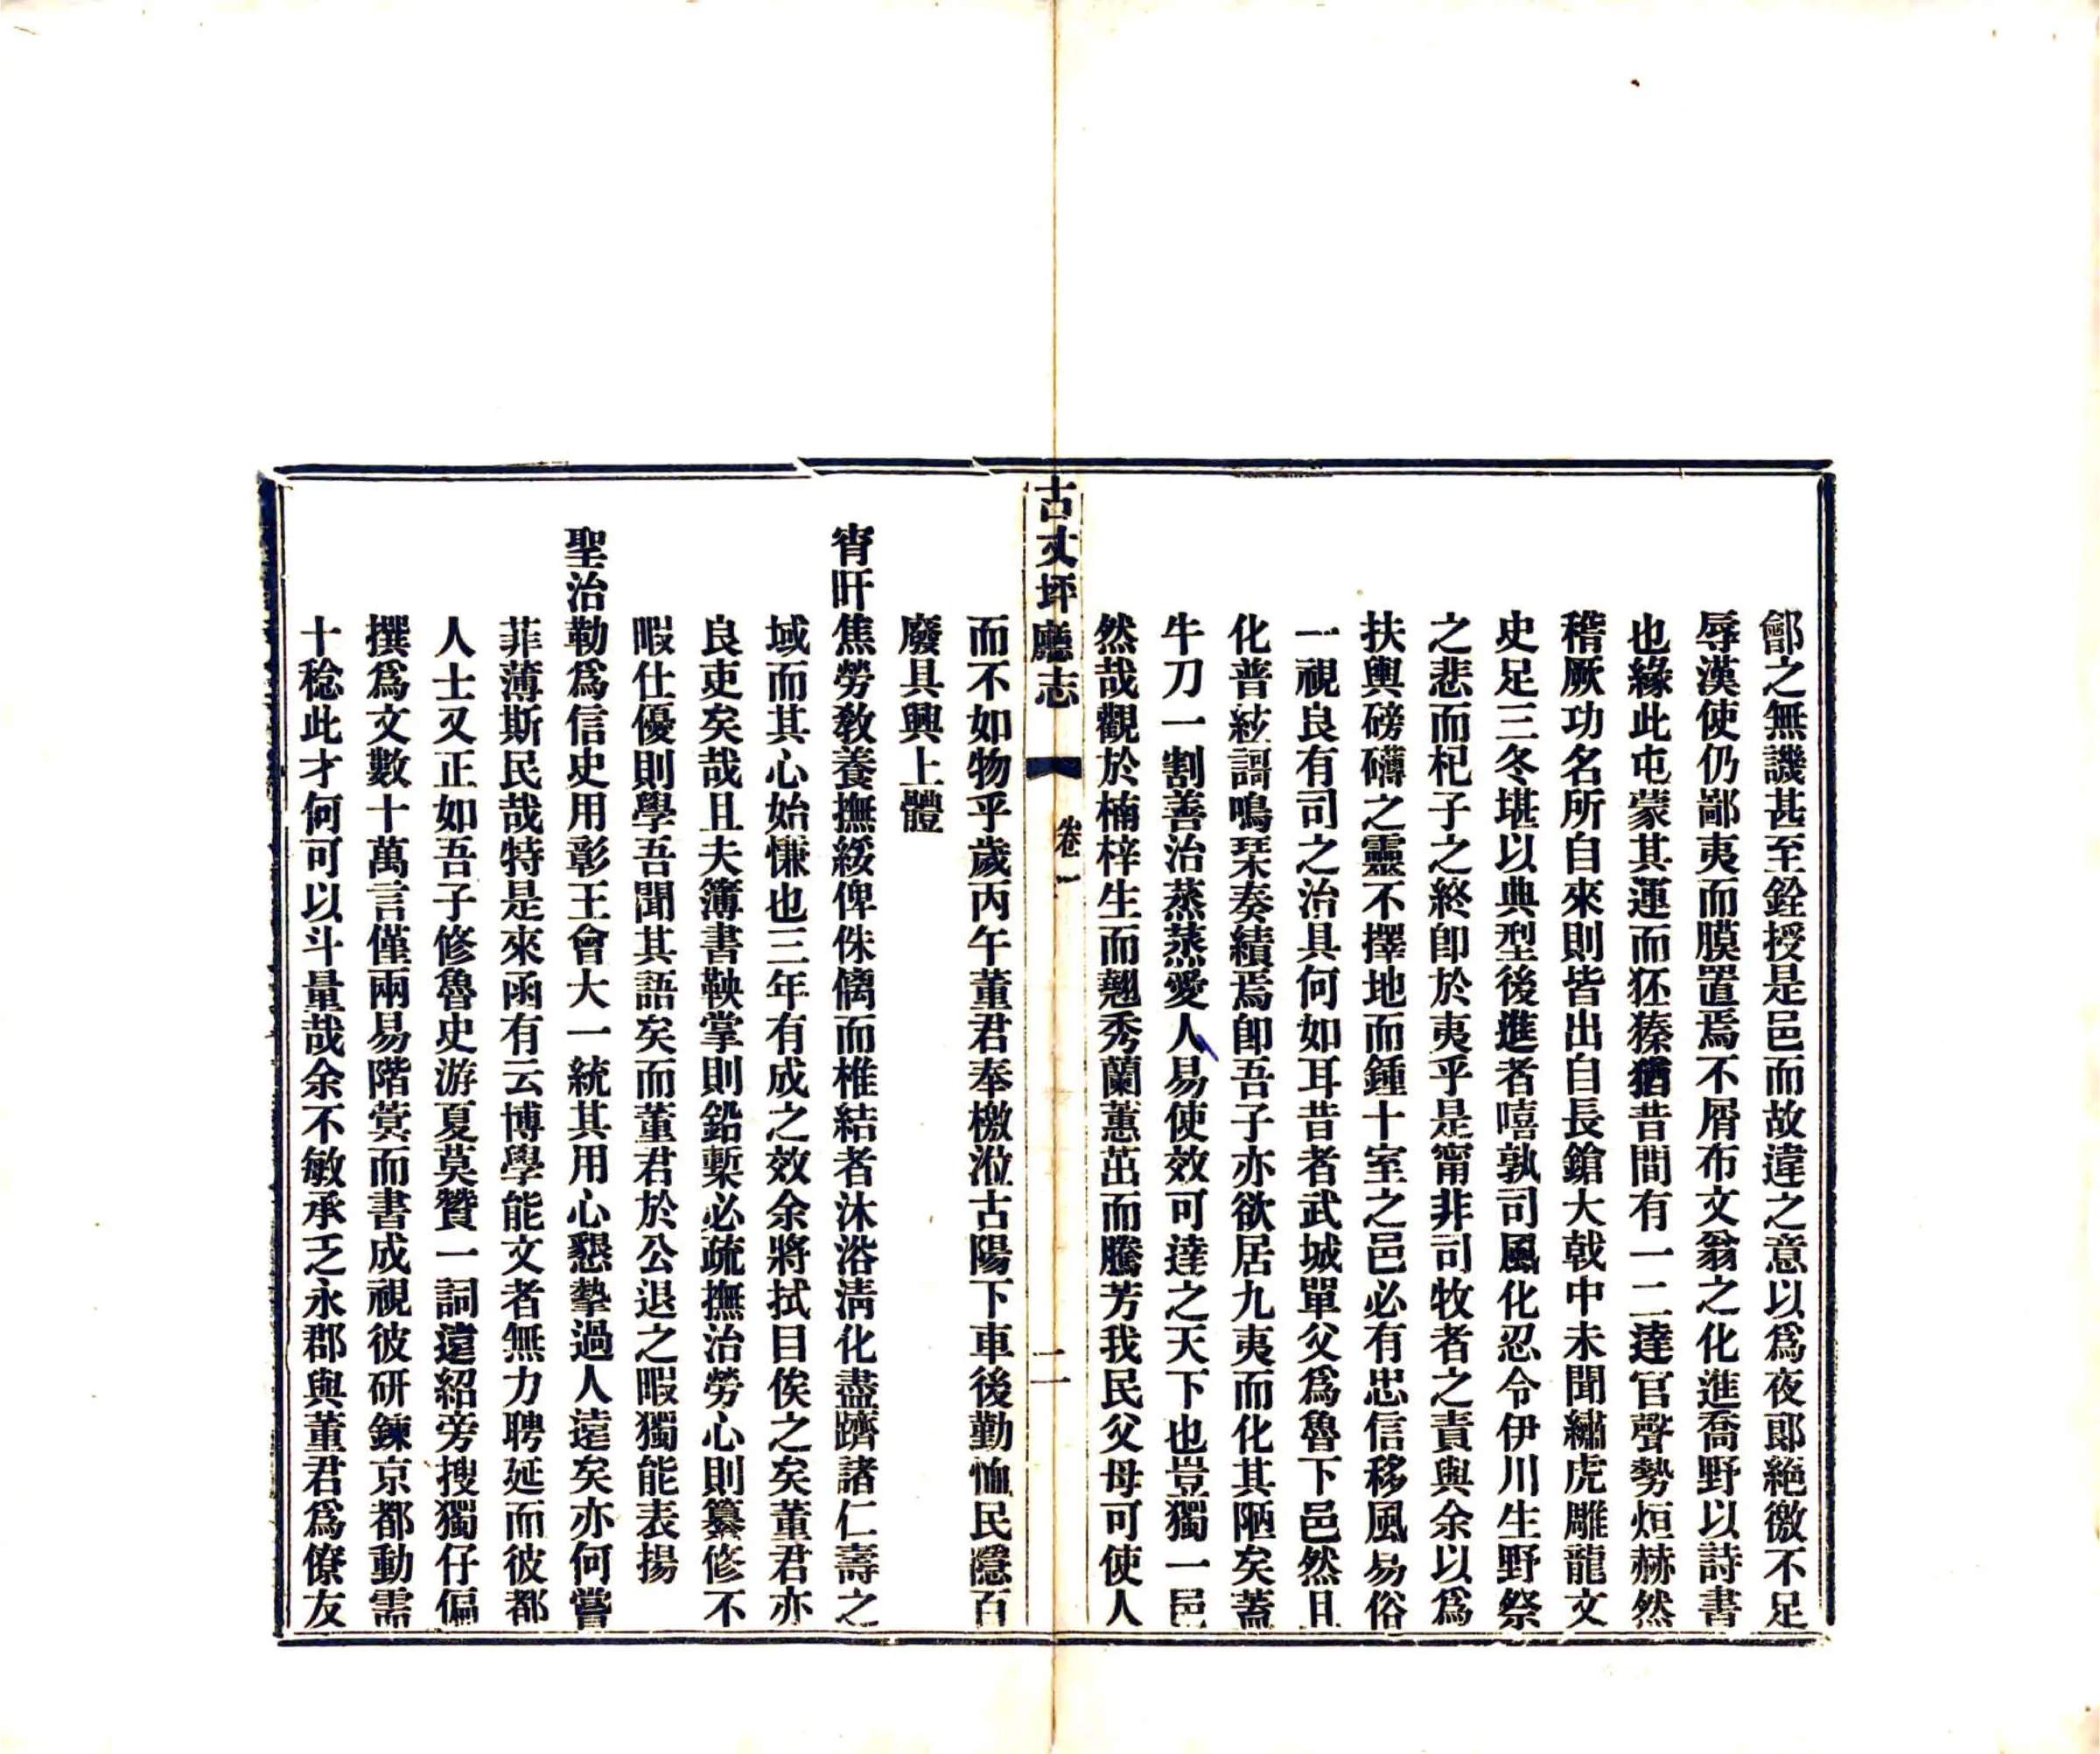 鄶之無譏甚至銓授是邑而故違之意以爲夜郞絕徼不足
辱漢使仍鄙夷而膜置焉不屑布文翁之化進喬野以詩書
也緣此屯蒙其運而狉獉猶昔間有一二達官聲勢烜赫然
稽厥功名所自來則皆出自長鎗大戟中未聞繡虎雕龍文
史足三冬堪以典型後進者嘻孰司風化忍令伊川生野祭
之悲而杞子之終卽於夷乎是甯非司牧者之責與余以爲
扶輿磅礴之靈不擇地而鍾十室之邑必有忠信移風易俗
一視良有司之治具何如耳昔者武城單父爲魯下邑然且
化普絃謌鳴琹奏績焉卽吾子亦欲居九夷而化其陋矣蓋
牛刀一割善治蒸蒸愛人易使效可達之天下也豈獨一邑
然哉觀於楠梓生而翹秀蘭蕙茁而騰芳我民父母可使人
古丈坪廳志 卷一 二
而不如物乎歲丙午董君奉檄涖古陽下車後勤恤民隱百
廢具興上體
宵旰焦勞敎養撫綏俾侏僪而椎結者沐浴淸化盡躋諸仁壽之
域而其心始慊也三年有成之效余將拭目俟之矣董君亦
良吏矣哉且夫簿書鞅掌則鉛槧必疏撫治勞心則纂修不
暇仕優則學吾聞其語矣而董君於公退之暇獨能表揚
聖治勒爲信史用彰王會大一統其用心懇摯過人遠矣亦何嘗
菲薄斯民哉特是來函有云博學能文者無力聘延而彼都
人士又正如吾子修魯史游夏莫贊一詞遠紹旁搜獨仔偏
撰爲文數十萬言僅兩易階蓂而書成視彼研鍊京都動需
十稔此才何可以斗量哉余不敏承乏永郡與董君爲僚友